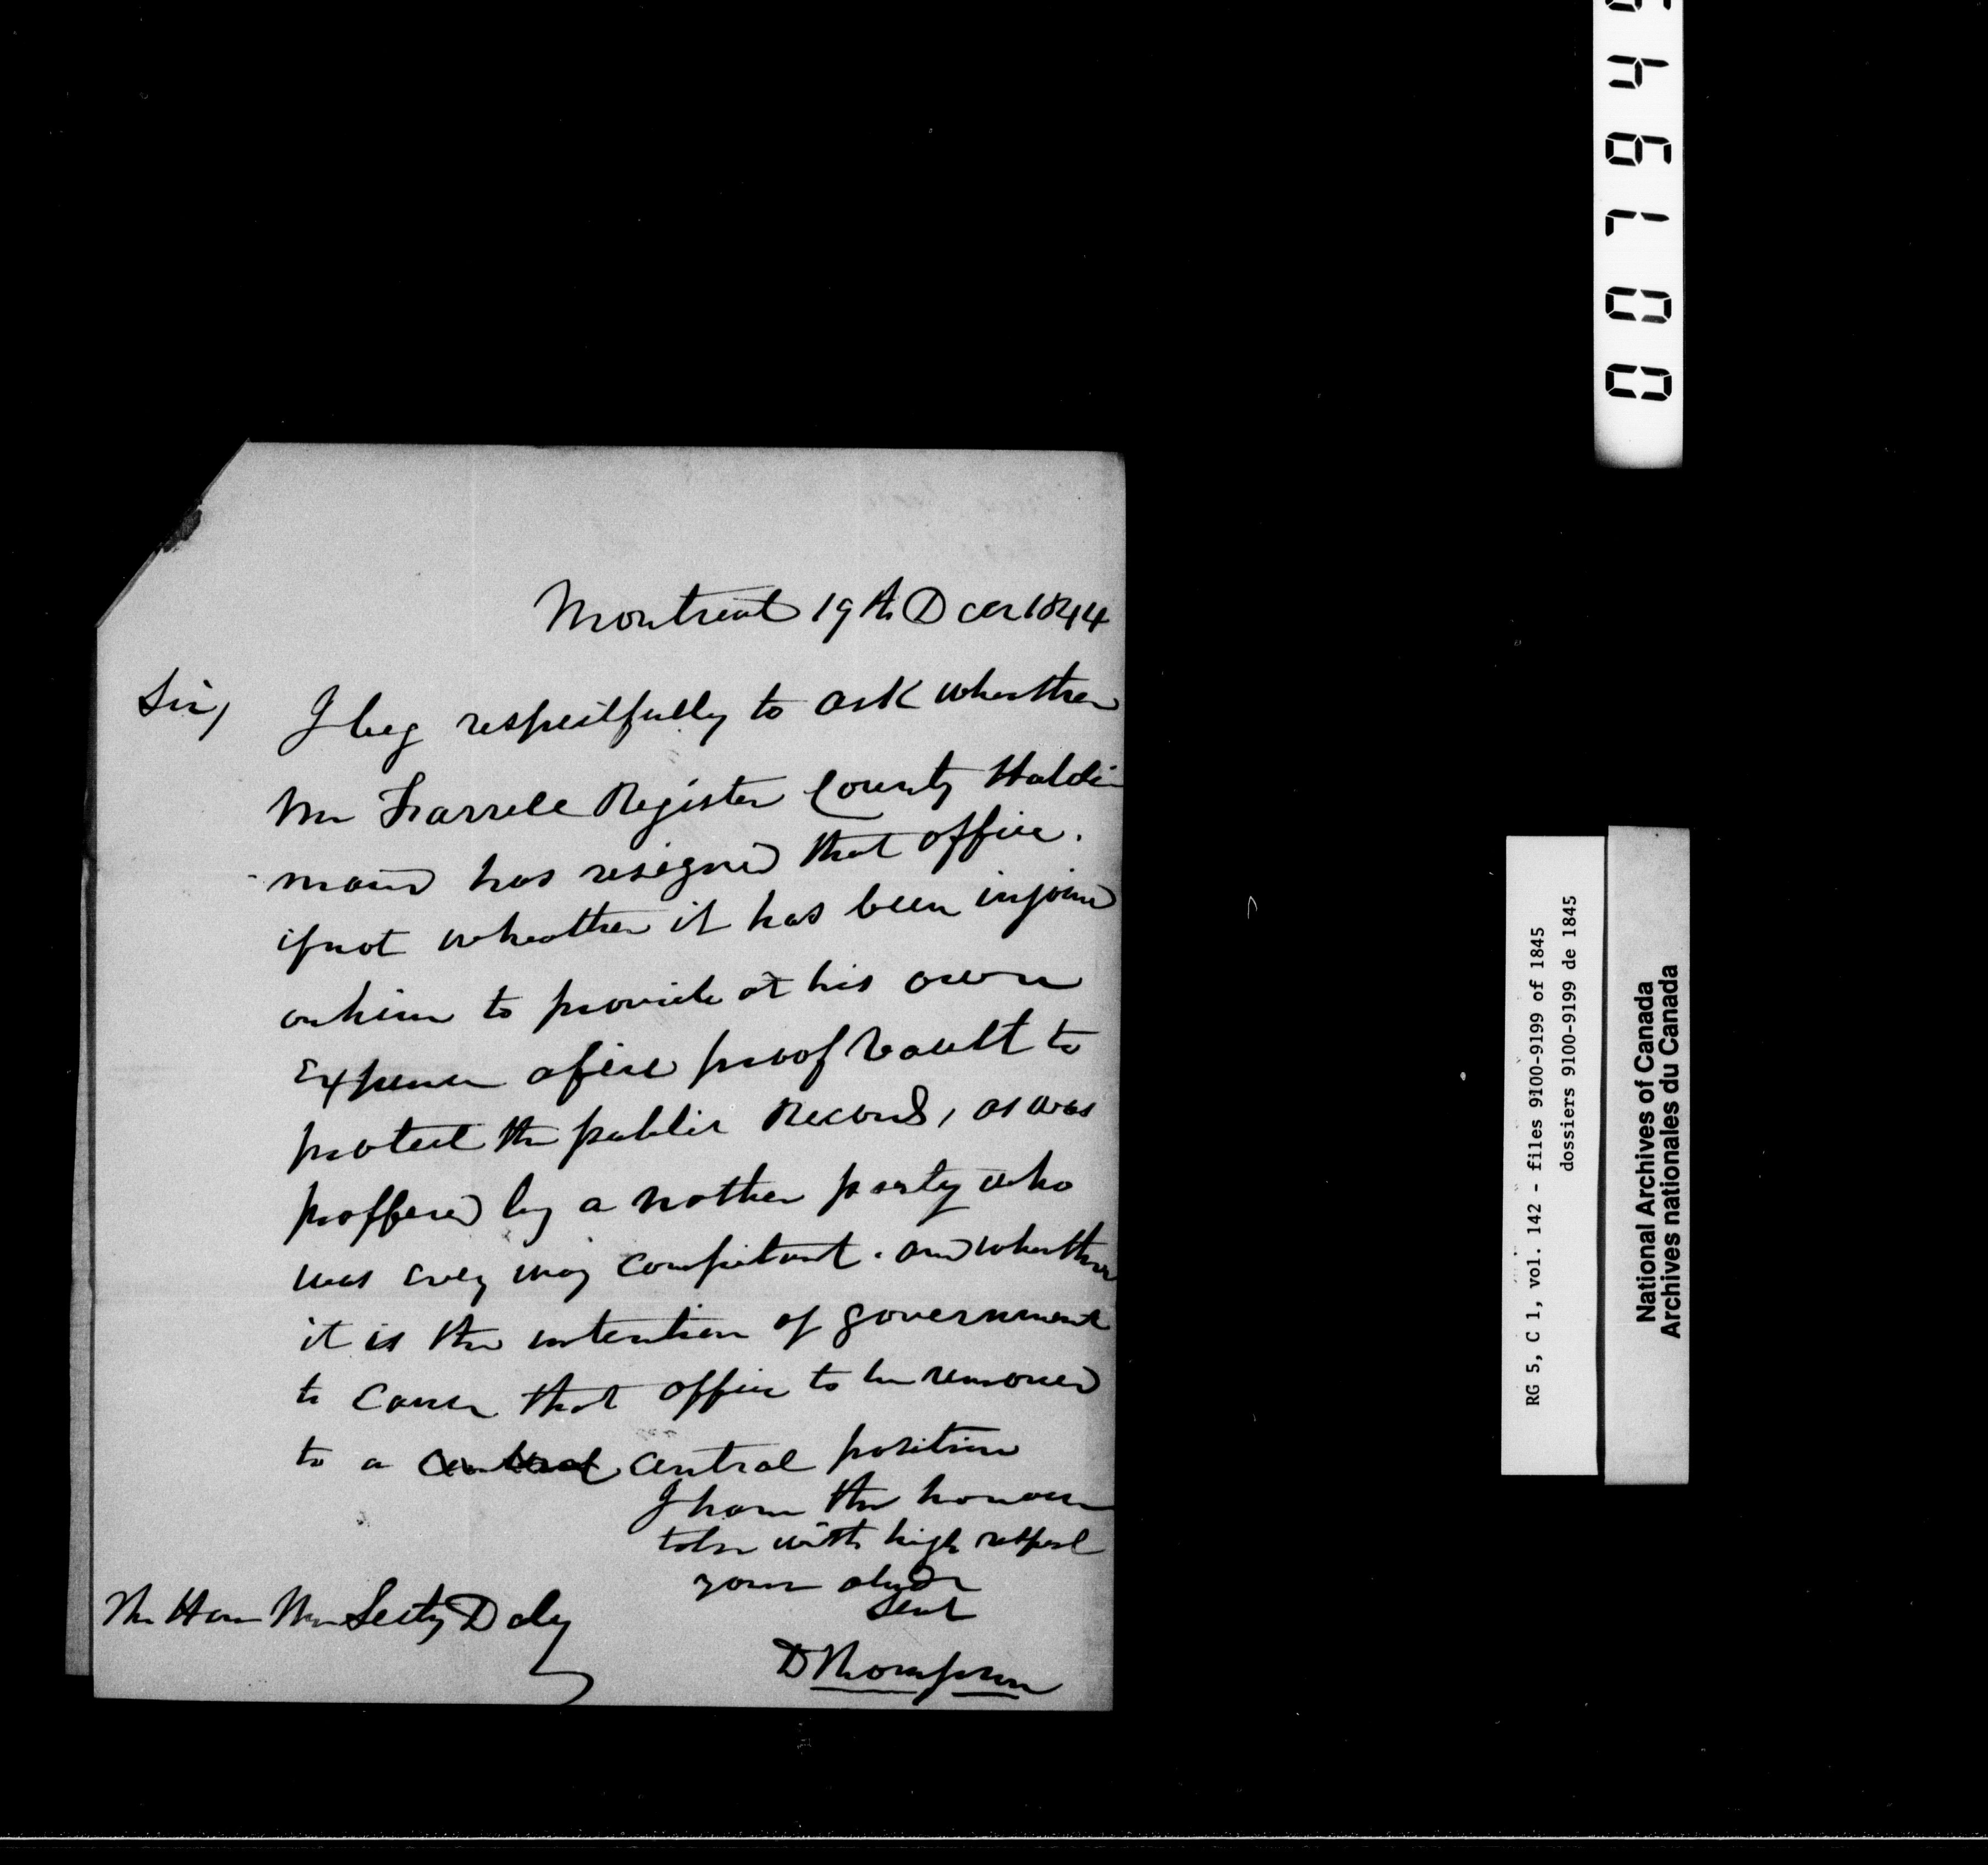 Montreal 19th Dcer 1844
Sir,
I beg respectfully to ask wheather
Mr Farrell Register County Haldi-
mand has resigned that office.
if not wheather it has been injoined
on him to provide at his own
Expence a fire proof vault to
protect the public Records, as was
proffered by a nother party who
was evey way competant. and wheather
it is the intention of government
to cause that office to be removed
to a central central position
I have the honour
to be with high respect
your obedt
Servt
D Thompson
The Hon Mr Secty Daly
RG 5, C 1, vol. 142 - files 9100-9199 of 1845
dossiers 9100-9199 de 1845
National Archives of Canada
Archives nationales du Canada